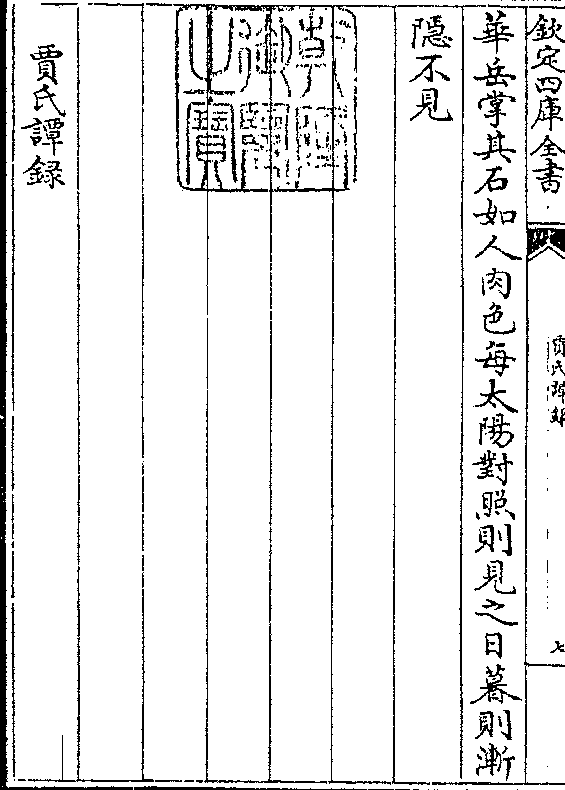 欽定四庫全書
賈氏譚録
七
華岳掌其石如人肉色每太陽對照則見之日暮則漸
隱不見
乾隆御覽之寶
賈氏譚録